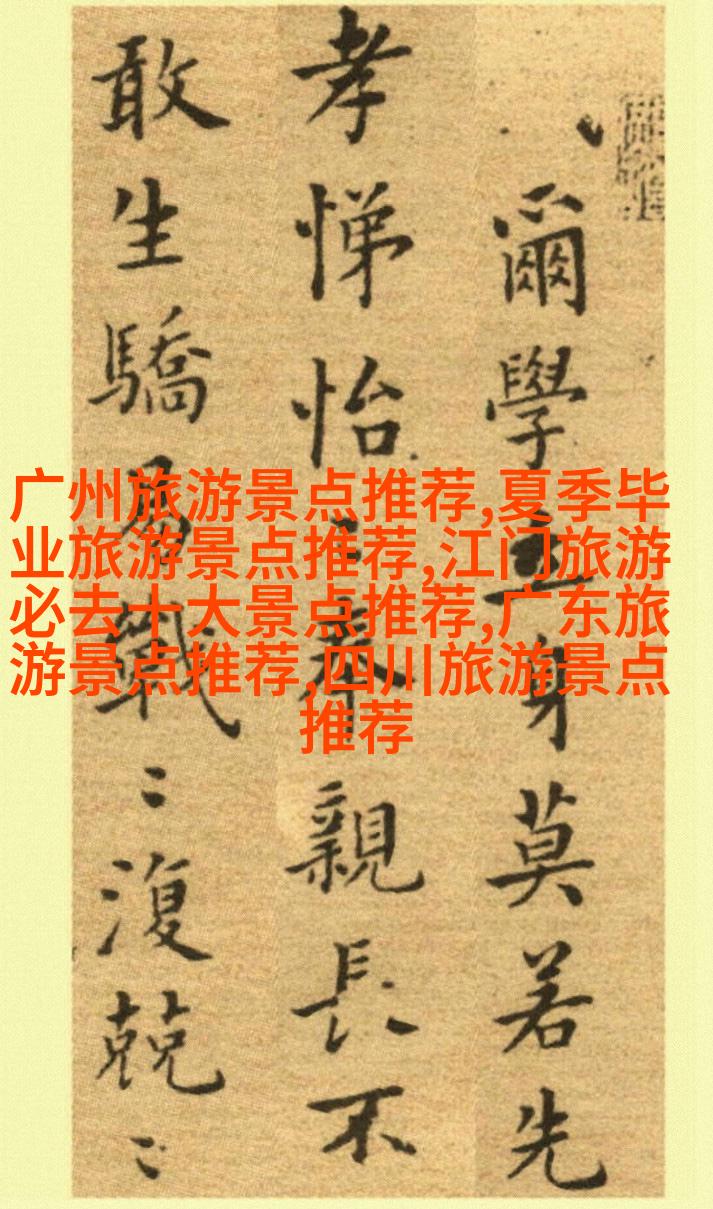 爾學立身莫若先
孝悌怡〻奉親長不
敢生驕易戰〻復兢〻
广州旅游景点推荐,夏季毕
业旅游景点推荐,江门旅游
必去十大景点推荐,广东旅
游景点推荐,四川旅游景点
推荐